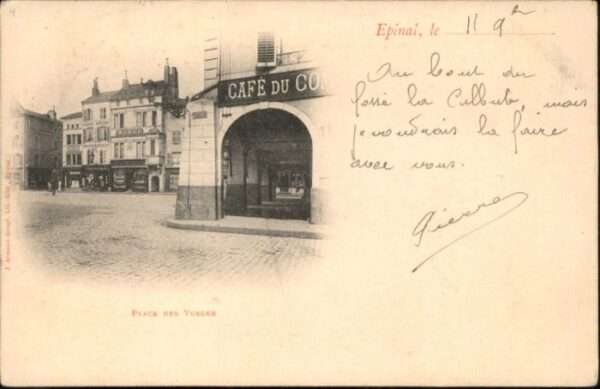 Epinal, le 11 9bre
Au bout du
fossé la Culbute, mais
je voudrais la faire
avec vous.
Pierre
CAFÉ DU CO
PLACE DES VOSGES